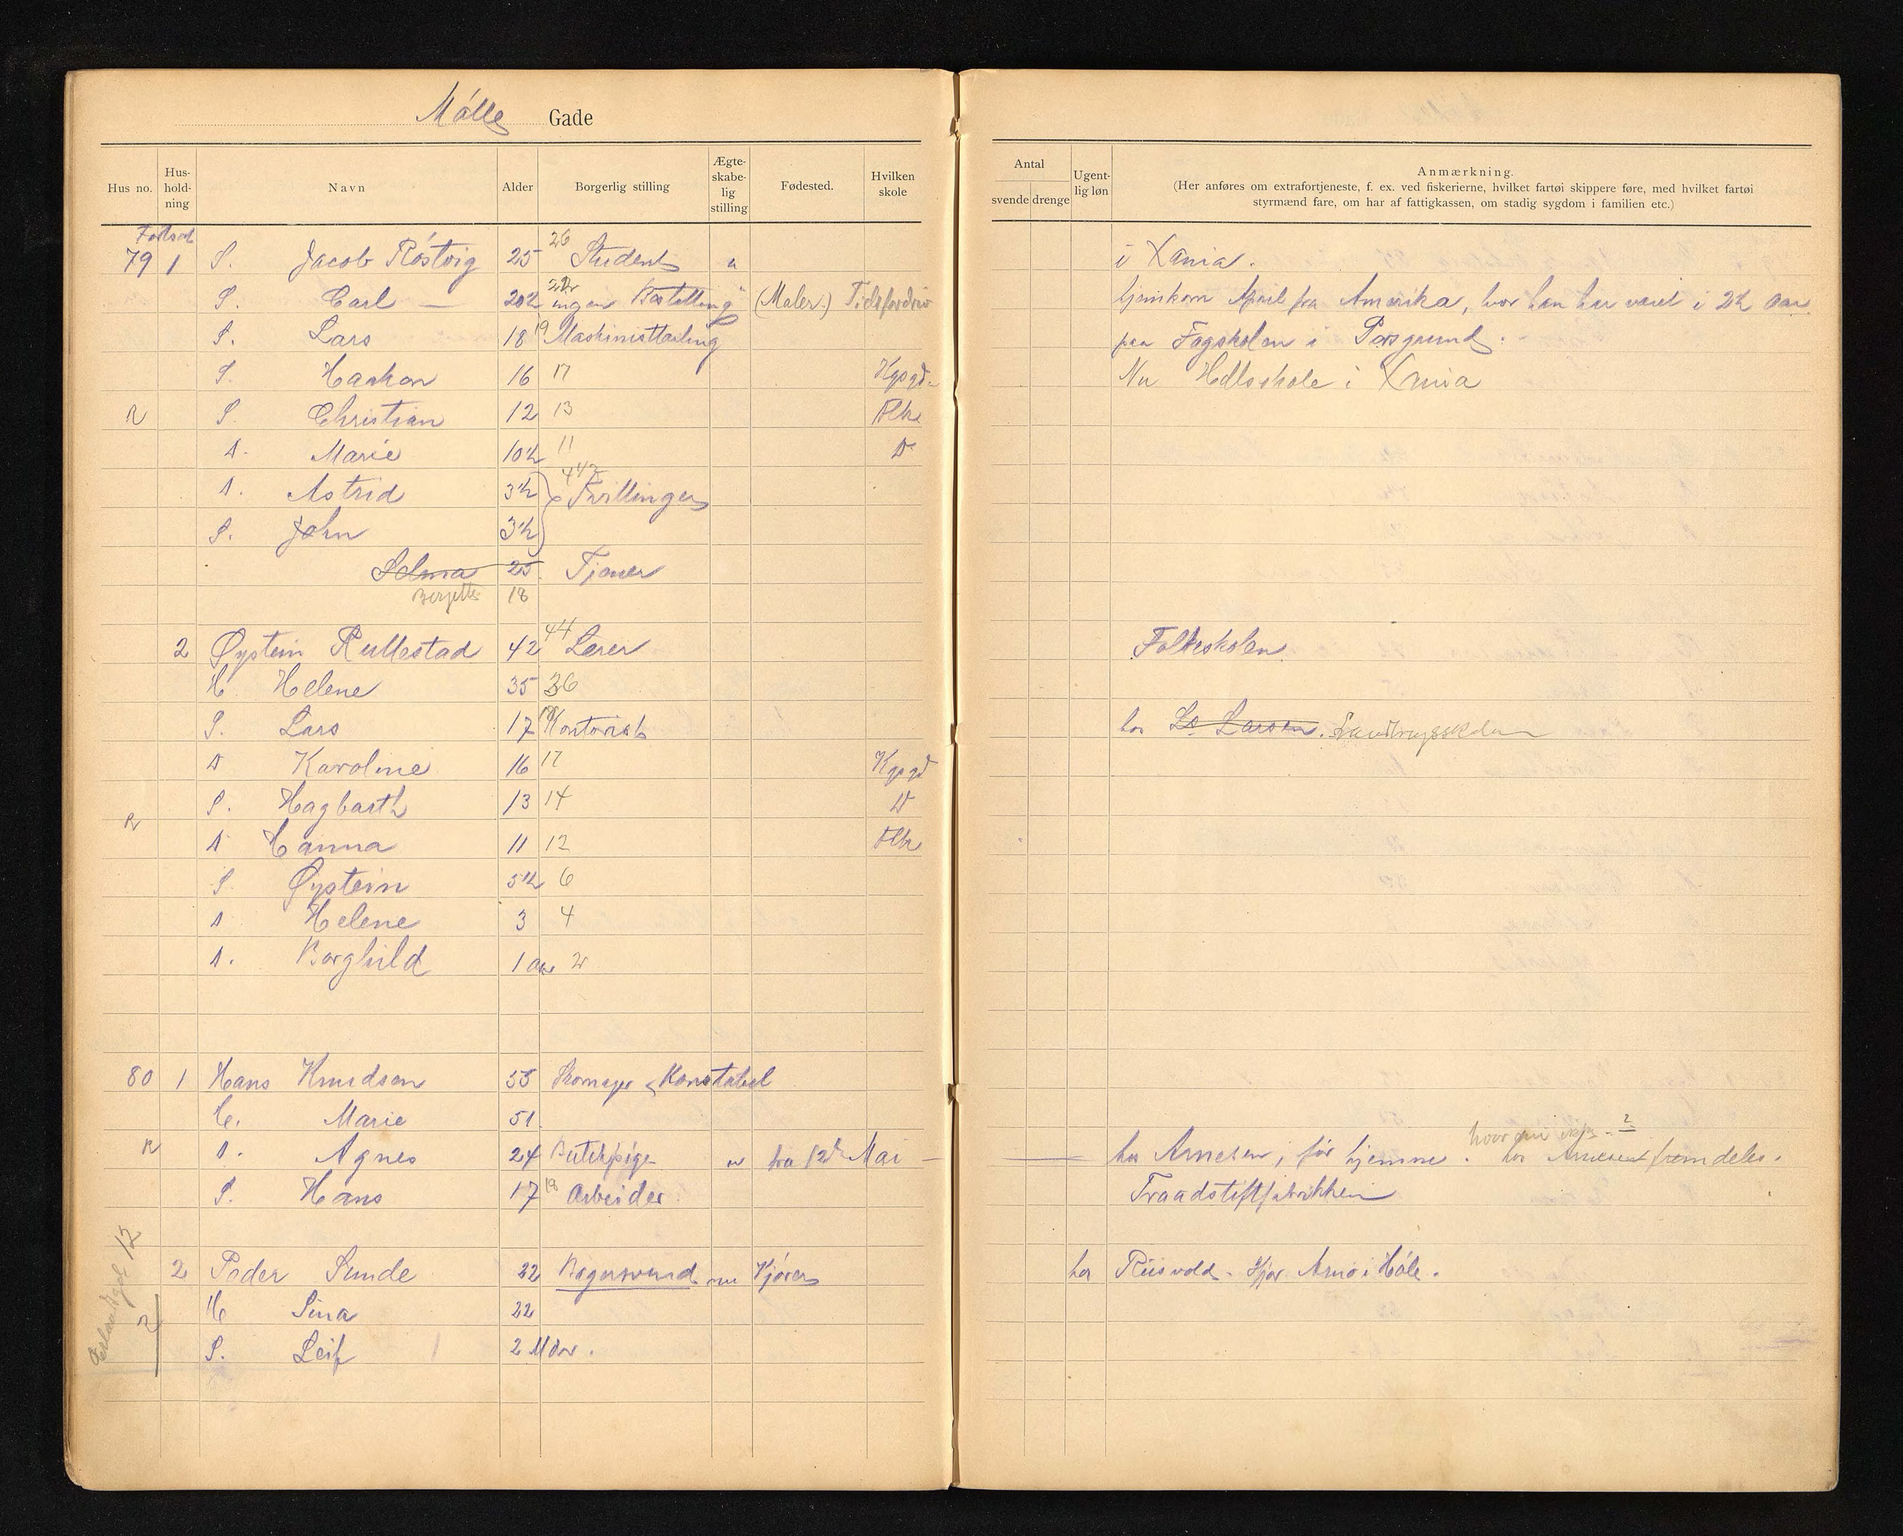 Mølle Gade
Hus no. Hus-hold-ning Navn Alder Borgerlig stilling Ægte-skabe-lig stilling Fødested. Hvilken skole
Antal svende drenge Ugent-lig løn Anmærkning.
(Her anføres om extrafortjeneste, f. ex. ved fiskerierne, hvilket fartøi skippere føre, med hvilket fartøi
styrmænd fare, om har af fattigkassen, om stadig sygdom i familien etc.)
Fortsat
79 1 S. Jacob Røstvig 25 26 Student u i Xania.
S. Carl — 20½ 22 ingen Bestilling (Maler.) Tidsfordriv hjemkom April fra Amerika, hvor han har været i 2½ aar.
S. Lars 18 19 Maskinistlærling paa Fagskolen i Porsgrund.
S. Haakon 16 17 Kgsgd. Nu Hdlsskole i Xnia
R S. Christian 12 13 Flk.
D. Marie 10½ 11 D
D. Astrid 3½ 4½ Tvillinger
S. John 3½
Selma 25 Tjener
18
2 Øystein Rullestad 42 44 Lærer Folkeskolen
H. Helene 35 36
S. Lars 17 18 Kontorist hos L. Larsen.
D Karoline 16 17 Kgsgd
S. Hagbarth 13 14 D
R D Hanna 11 12 Flk
S. Øystein 5½ 6
D Helene 3 4
D. Borghild 1 aar 2
80 1 Hans Knudsen 53 Skomager & Konstabel
H. Marie 51
hvor
R D. Agnes 24 Butikpige u fra 12 Mai — hos Arnesen, før hjemme. hos Arnesen fremdeles.
S. Hans 17 18 Arbeider Traadstiftfabrikken
2 Peder Sunde 22 Bagersvend nu Kjører hos Riisvold. Kjør. Arne i Hole.
H Sina 22
S. Leif 2 Mdr.
12
2